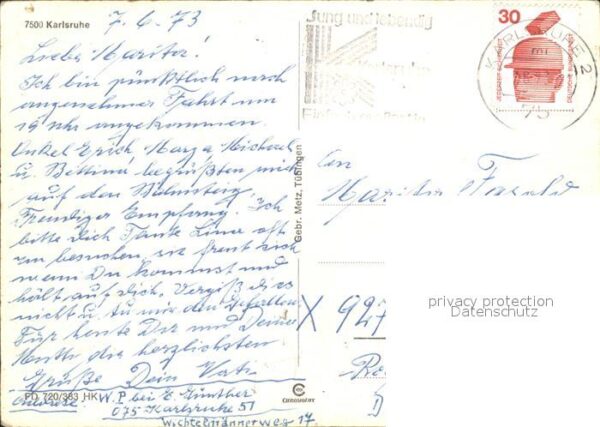 7500 Karlsruhe
7.6.73
Liebe Marita!
Ich bin pünktlich nach
angenehmer Fahrt um
19 Uhr angekommen.
Onkel Erich, Marga, Michael
u. Bettina begrüßten mich
auf dem Bahnsteig.
Freudiger Empfang. Ich
bitte Dich Tante Lina oft
zu besuchen, sie freut sich
wenn Du kommst und
hält auf dich. Vergiß es
nicht u. tu mir den Gefallen
Für heute Dir und Deiner
Mutti die herzlichsten
Grüße Dein Vati
Adresse: W. P bei E. Günther
075 Karlsruhe 51
Wichtelmännerweg 17
PD 720/383 HK
Gebr. Metz, Tübingen
Cramolor
Jung und lebendig
30
JEDERZEIT SICHERHEIT
DEUTSCHE BUNDESPOST
KARLSRUHE 2
75
An
Marita
X 927
privacy protection
Datenschutz